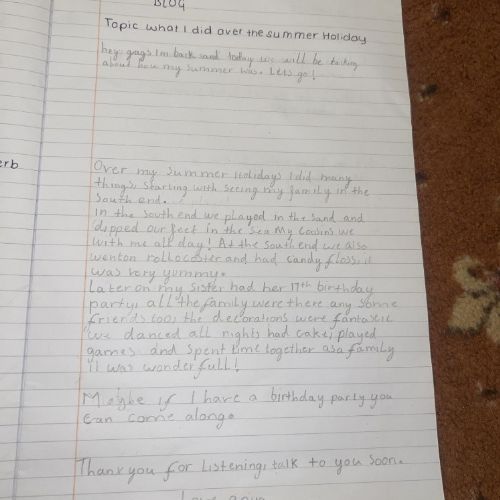 BLOG
Topic what I did over the summer Holiday
hey guys I'm back and today we will be talking
about how my summer was. Lets go!
erb
Over my summer Holidays I did many
things, starting with seeing my family in the
South end.
in the South end we played in the sand and
dipped our feet in the sea My cousins we
with me all day! At the south end we also
went on rollocoster and had candy floss, it
was very yummy.
Later on my sister had her 17th birthday
party, all the family were there any some
friends too, the decorations were fantastic
we danced all nights had cake, played
games and spent time together as a family
it was wonderfull!
Maybe if I have a birthday party you
can come along.
Thank you for Listening, talk to you soon.
Love